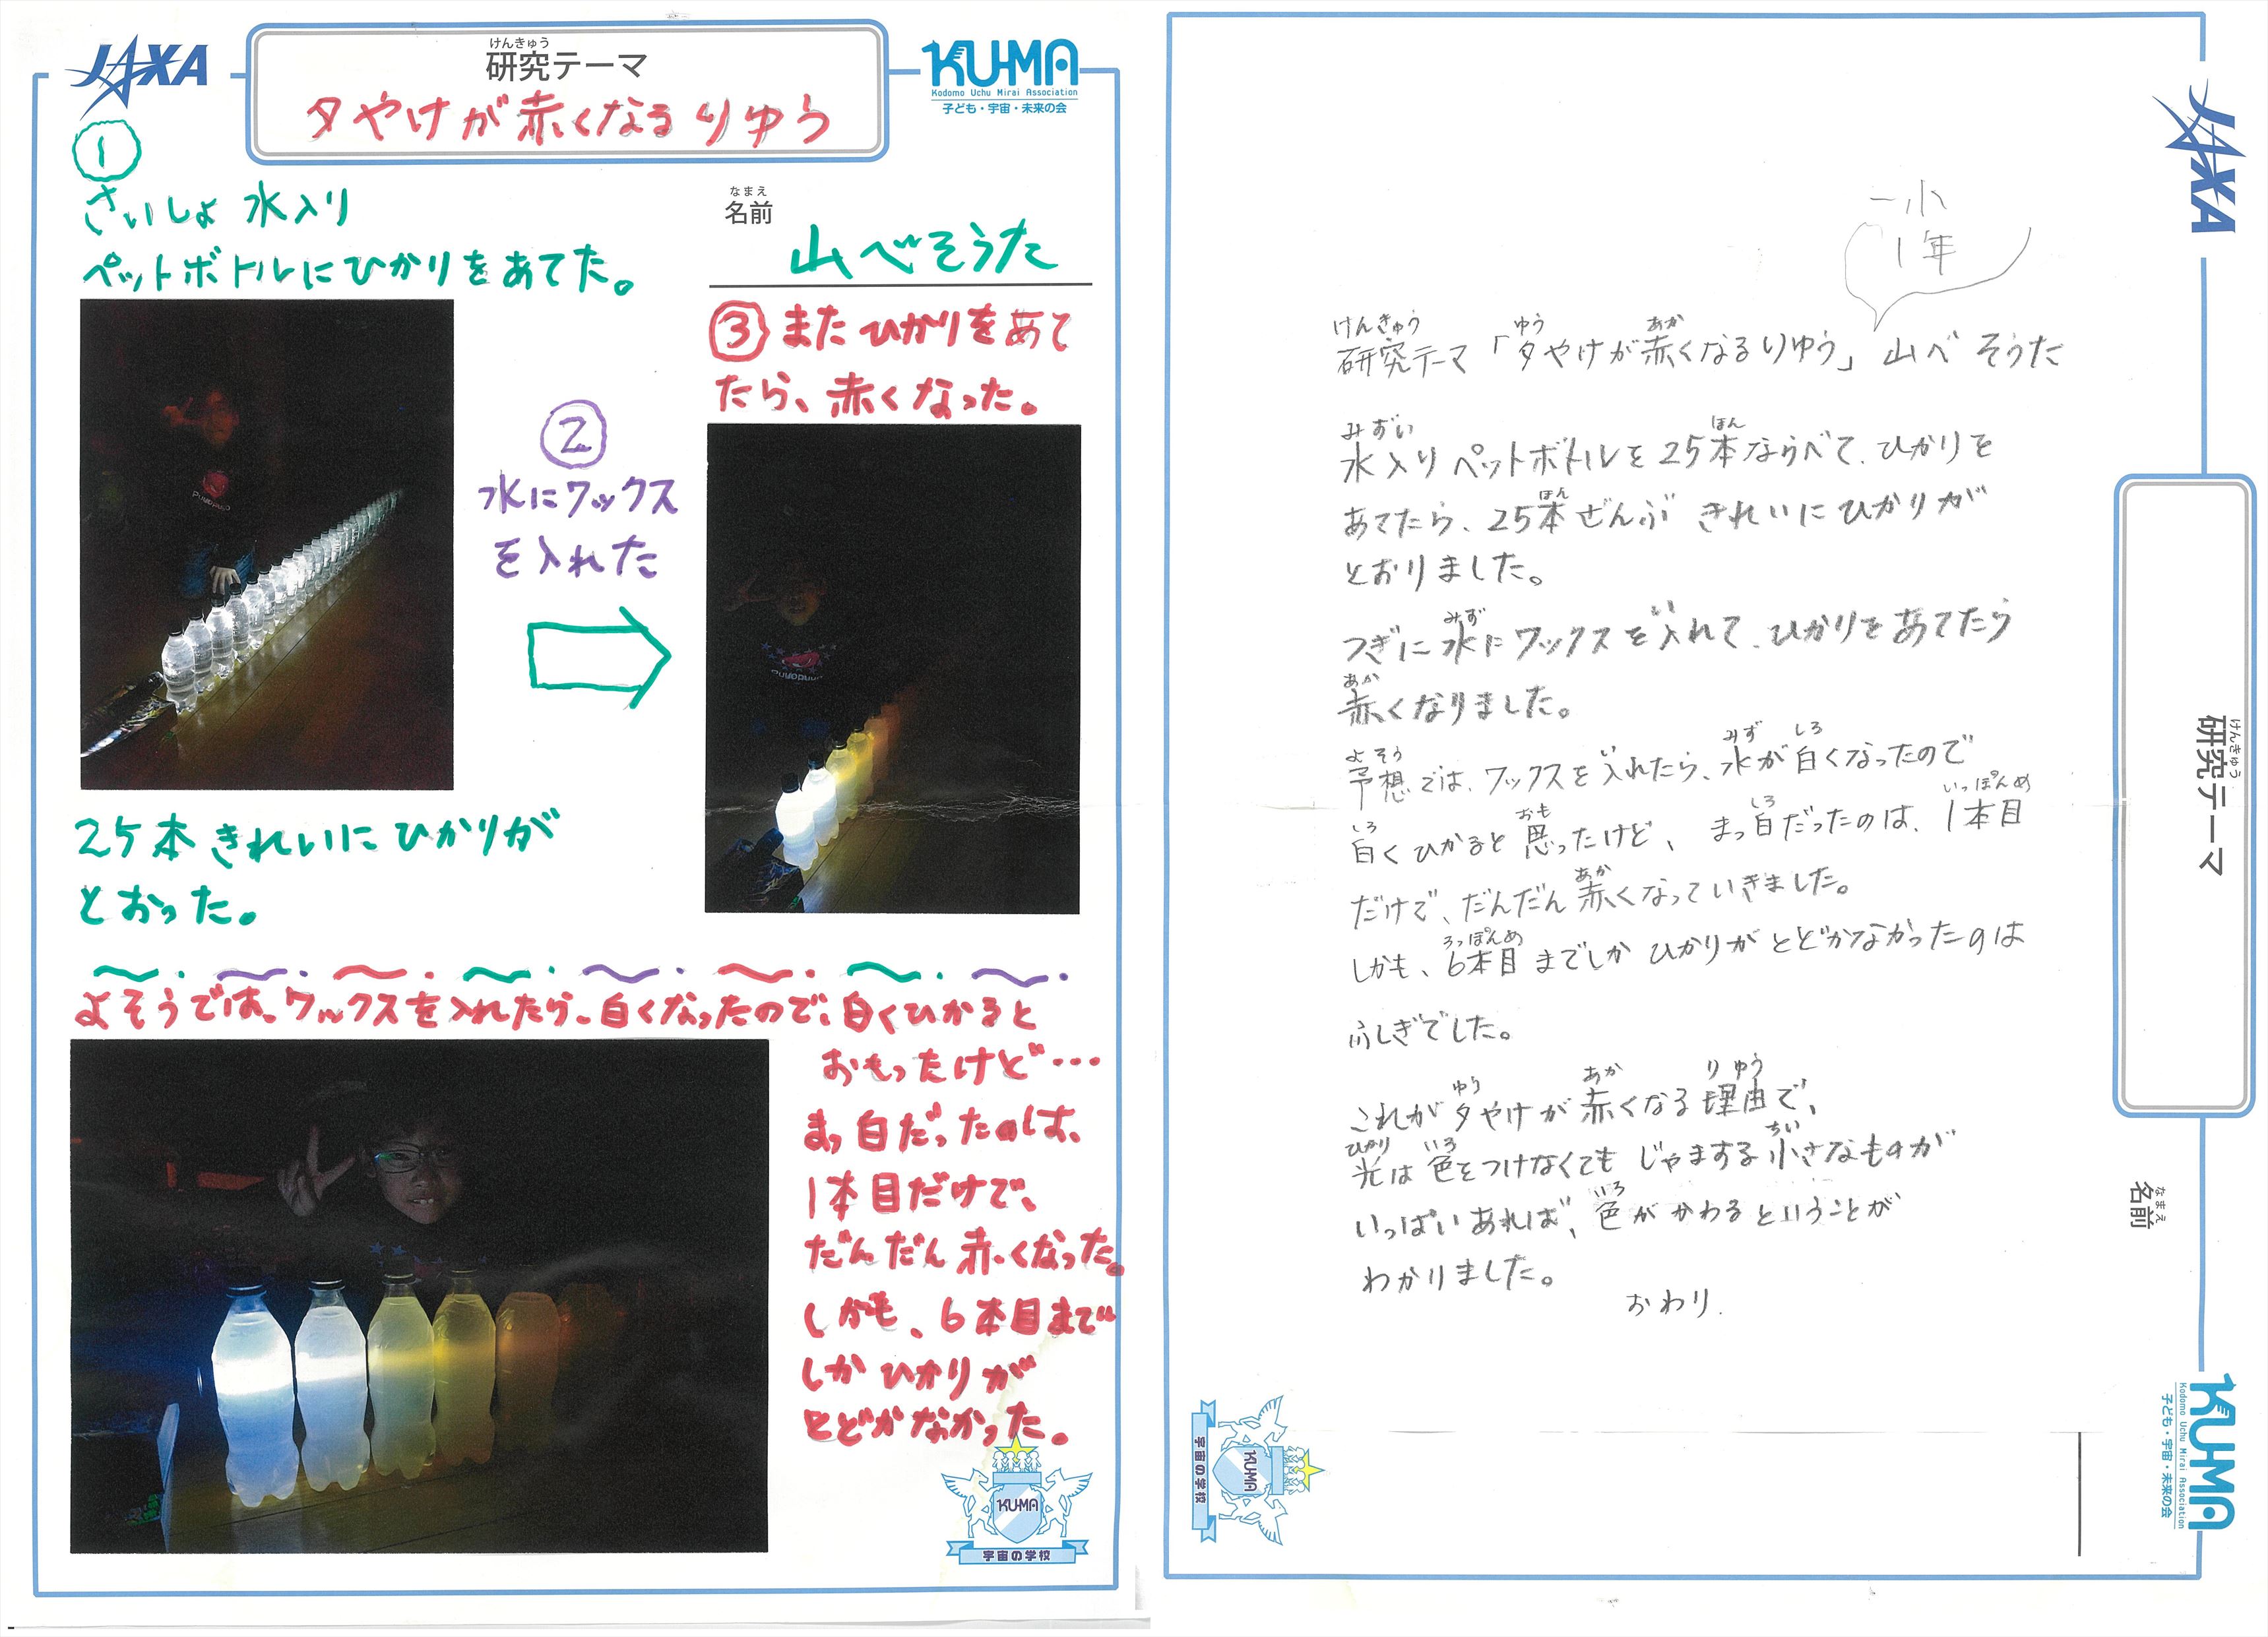 JAXA
けんきゅう
研究テーマ
夕やけが赤くなるりゆう
KU-MA
Kodomo Uchu Mirai Association
子ども・宇宙・未来の会
①
さいしょ 水入り
ペットボトルにひかりをあてた。
なまえ
名前
山べそうた
25本きれいにひかりが
とおった。
②
水にワックス
を入れた
③またひかりをあて
たら、赤くなった。
よそうでは、ワックスを入れたら、白くなったので、白くひかると
おもったけど…
まっ白だったのは、
1本目だけで、
だんだん赤くなった。
しかも、6本目まで
しかひかりが
とどかなかった。
KU-MA
宇宙の学校
一小
1年
けんきゅう ゆう あか
研究テーマ「夕やけが赤くなるりゆう」山べ そうた
みずい ほん
水入りペットボトルを25本ならべて、ひかりを
ほん
あてたら、25本ぜんぶ きれいにひかりが
とおりました。
みず い
つぎに水にワックスを入れて、ひかりをあてたら
あか
赤くなりました。
よそう い みず しろ
予想では、ワックスを入れたら、水が白くなったので
しろ おも しろ いっぽんめ
白くひかると思ったけど、まっ白だったのは、1本目
あか
だけで、だんだん赤くなっていきました。
ろっぽんめ
しかも、6本目までしか ひかりがとどかなかったのは
ふしぎでした。
ゆう あか りゆう
これが夕やけが赤くなる理由で、
ひかり いろ ちい
光は色をつけなくてもじゃまする小さなものが
いろ
いっぱいあれば、色がかわるということが
わかりました。
おわり.
JAXA
けんきゅう
研究テーマ
なまえ
名前
KU-MA
Kodomo Uchu Mirai Association
子ども・宇宙・未来の会
KU-MA
宇宙の学校